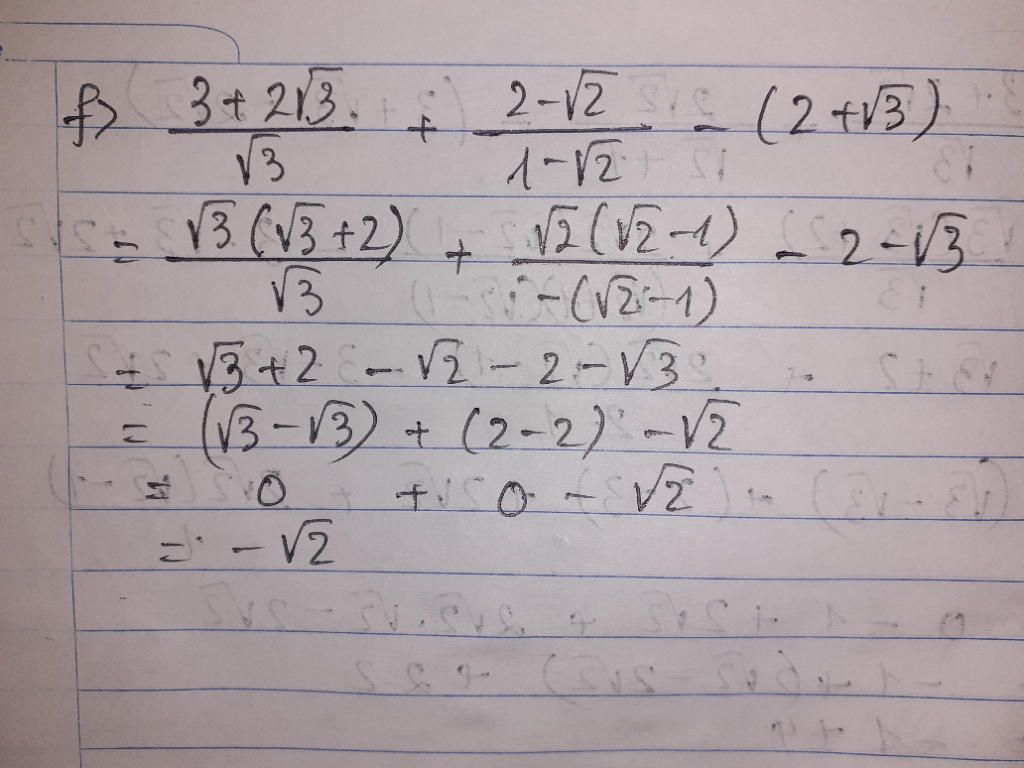 f) (3 + 2√3)/√3 + (2 - √2)/(1 - √2) - (2 + √3)
= √3(√3 + 2)/√3 + √2(√2 - 1)/-(√2 - 1) - 2 - √3
= √3 + 2 - √2 - 2 - √3
= (√3 - √3) + (2 - 2) - √2
= 0 + 0 - √2
= - √2